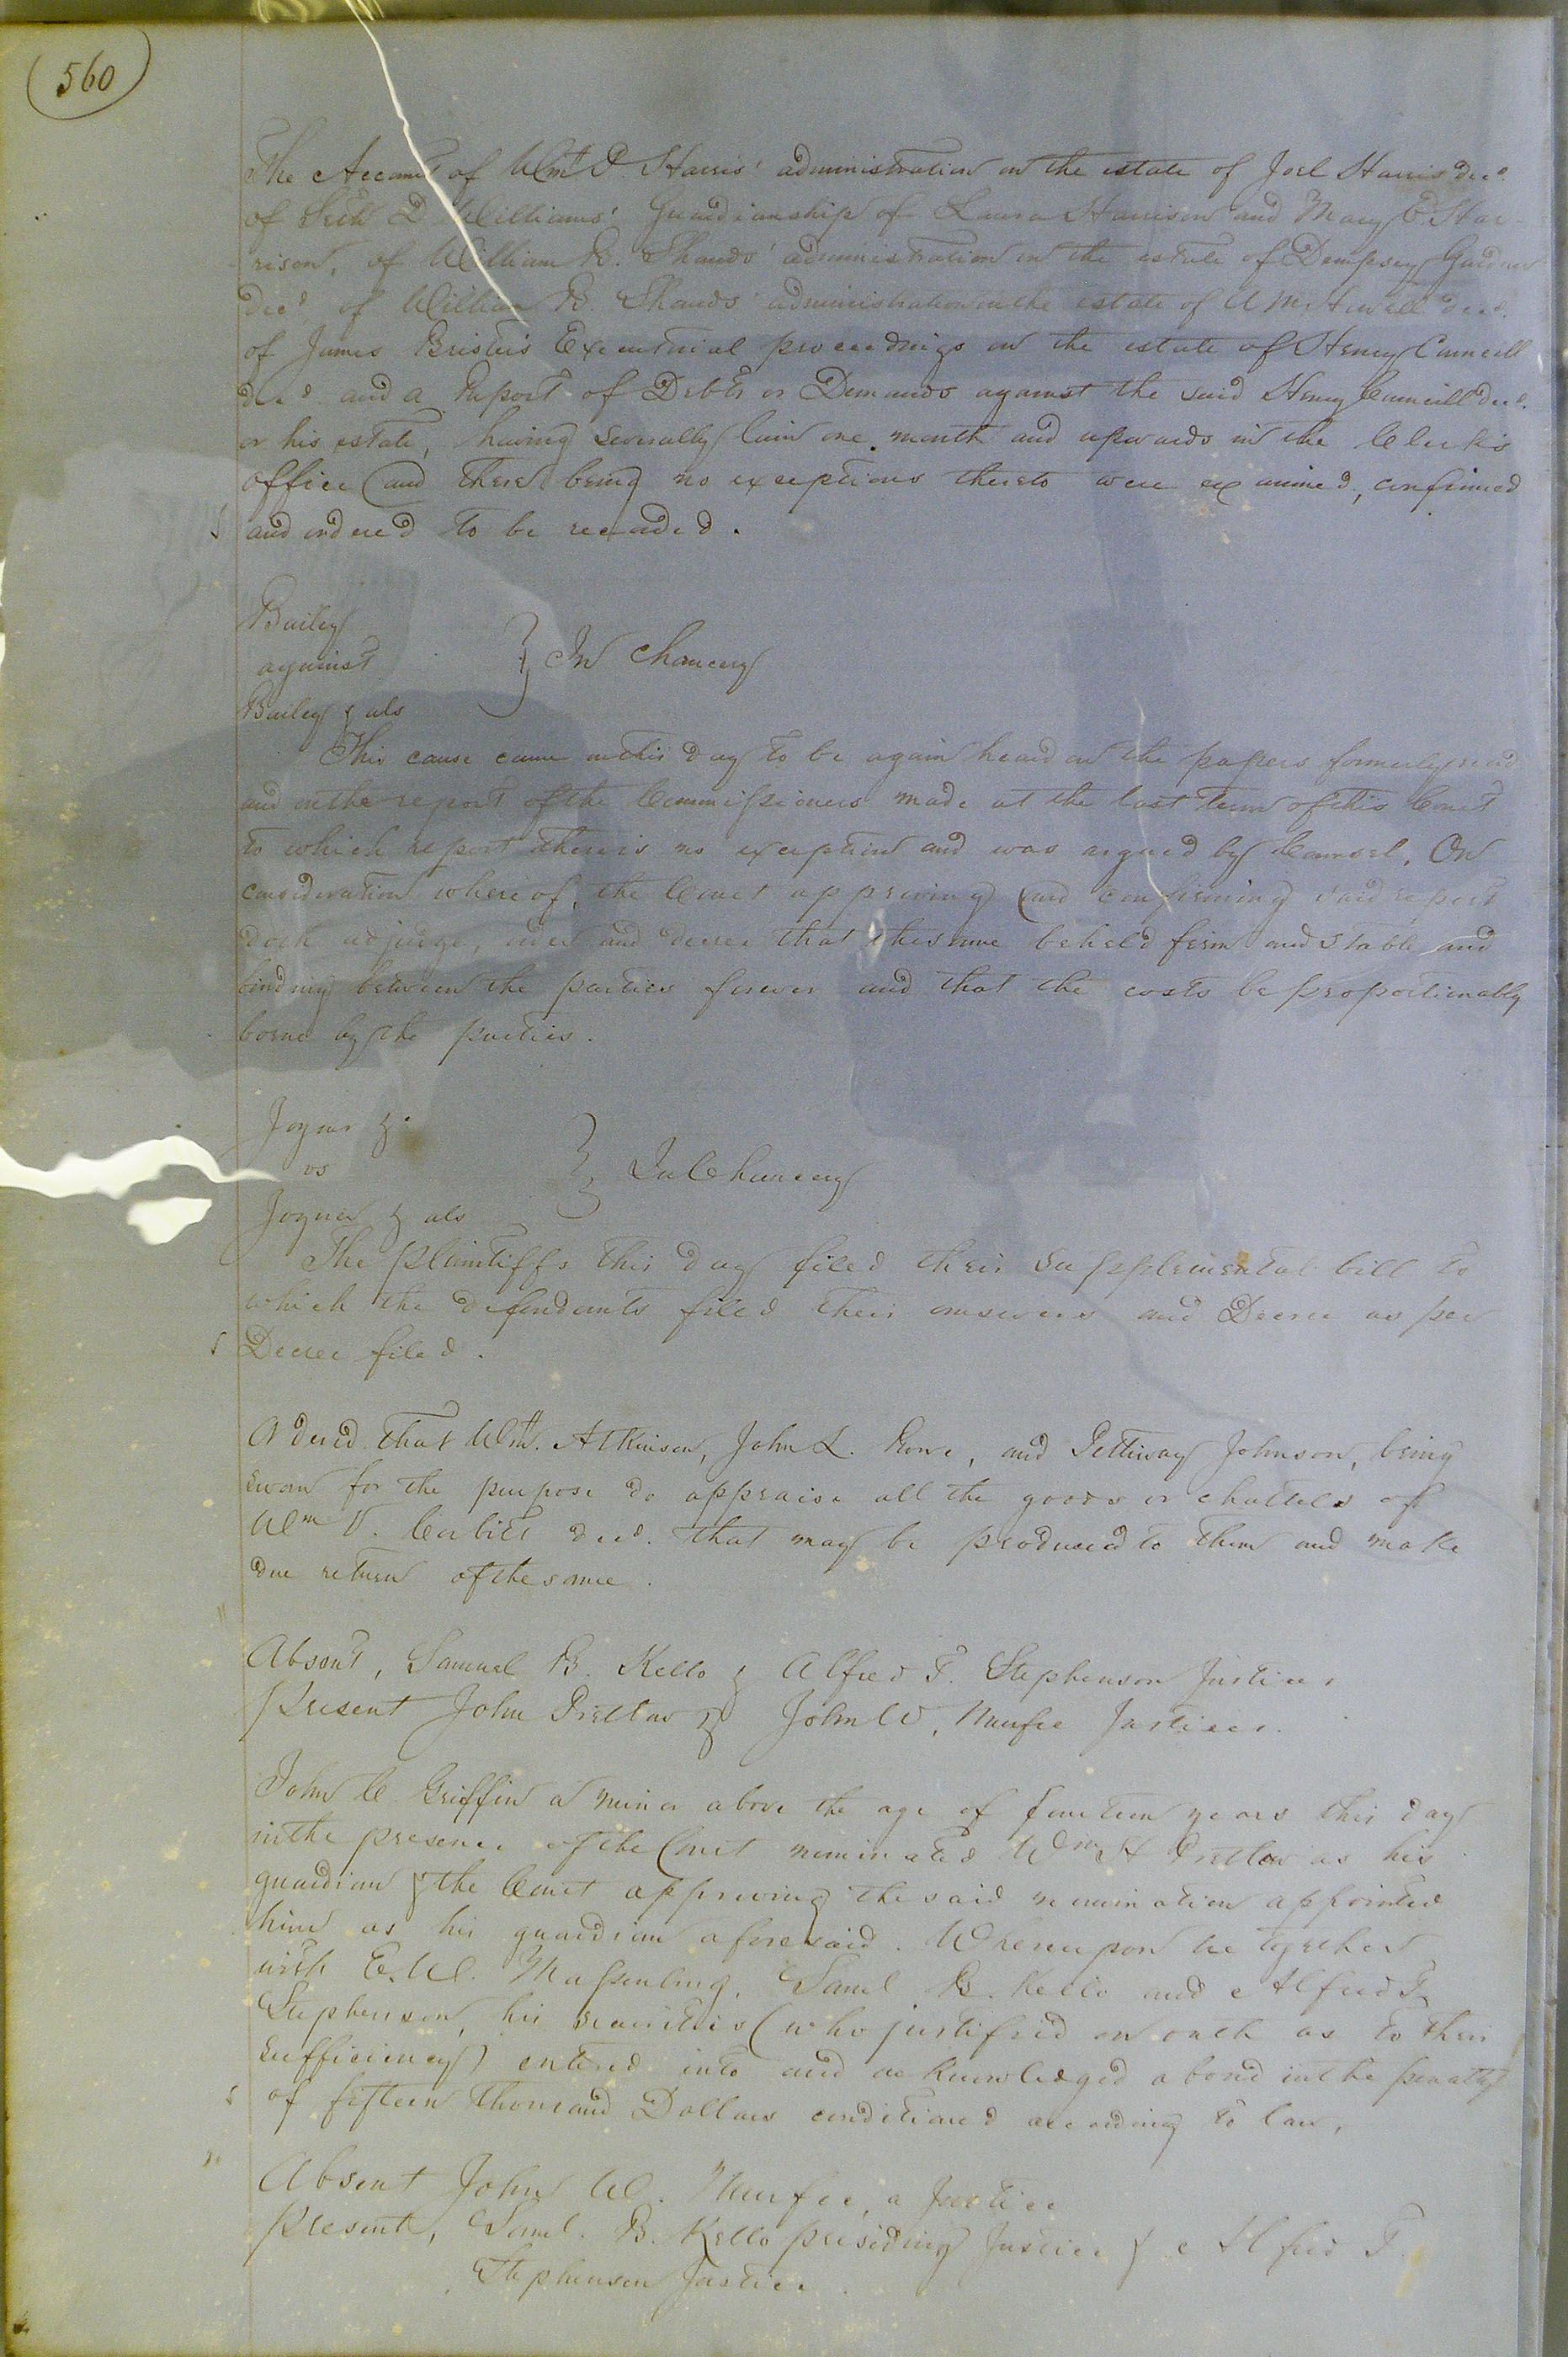 560
The Account of Wm P. Harris' administration on the estate of Joel Harris decd.
of D. Williams' Guardianship of Laura Harrison and Mary E. Har-
rison, of William B. Shands' administration on the estate of Dempsey Gardner
decd. of William B. Shands' administration on the estate of decd.
of James Bristers Executorial proceedings on the estate of Henry Councill
decd. and a Report of Debts or Demands against the said Henry Councill decd.
or his estate, having severally lain one month and upwards in the Clerk's
office and there being no exceptions thereto were examined, confirmed
and ordered to be recorded.
Bailey
against } In Chancery
Bailey & als
This cause came on this day to be again heard on the papers formerly read
and on the report of the Commissioners made at the last term of this Court
to which report there is no exception and was argued by Counsel. On
consideration whereof, the Court approving and confirming said report
doth adjudge, order and decree that the same be held firm and stable and
binding between the parties forever and that the costs be proportionally
borne by the parties.
Joyner &c
vs } In Chancery
Joyner & als
The plaintiffs this day filed their supplemental bill to
which the defendants filed their answers and Decree as per
Decree filed.
Ordered that Wm. Atkinson, John L. and Pettway Johnson, being
sworn for the purpose do appraise all the goods or chattels of
Wm V. Corbitt decd. that may be produced to them and make
due return of the same.
Absent, Samuel B. Kello & Alfred T. Stephenson Justices
Present John Pretlow & John W. Murfee Justices.
John C. Griffin a minor above the age of fourteen years this day
in the presence of the Court nominated Wm H Pretlow as his
guardian & the Court approving the said nomination appointed
him as his guardian aforesaid. Whereupon he together
with E. W. Massenburg, Saml B. Kello and Alfred T.
Stephenson, his securities (who justified on oath as to their
sufficiency) entered into and acknowledged a bond in the penalty
of fifteen thousand Dollars conditioned according to law.
Absent John W. Murfee, a Justice
Present, Saml. B. Kello presiding Justice & Alfred T.
Stephenson Justice.